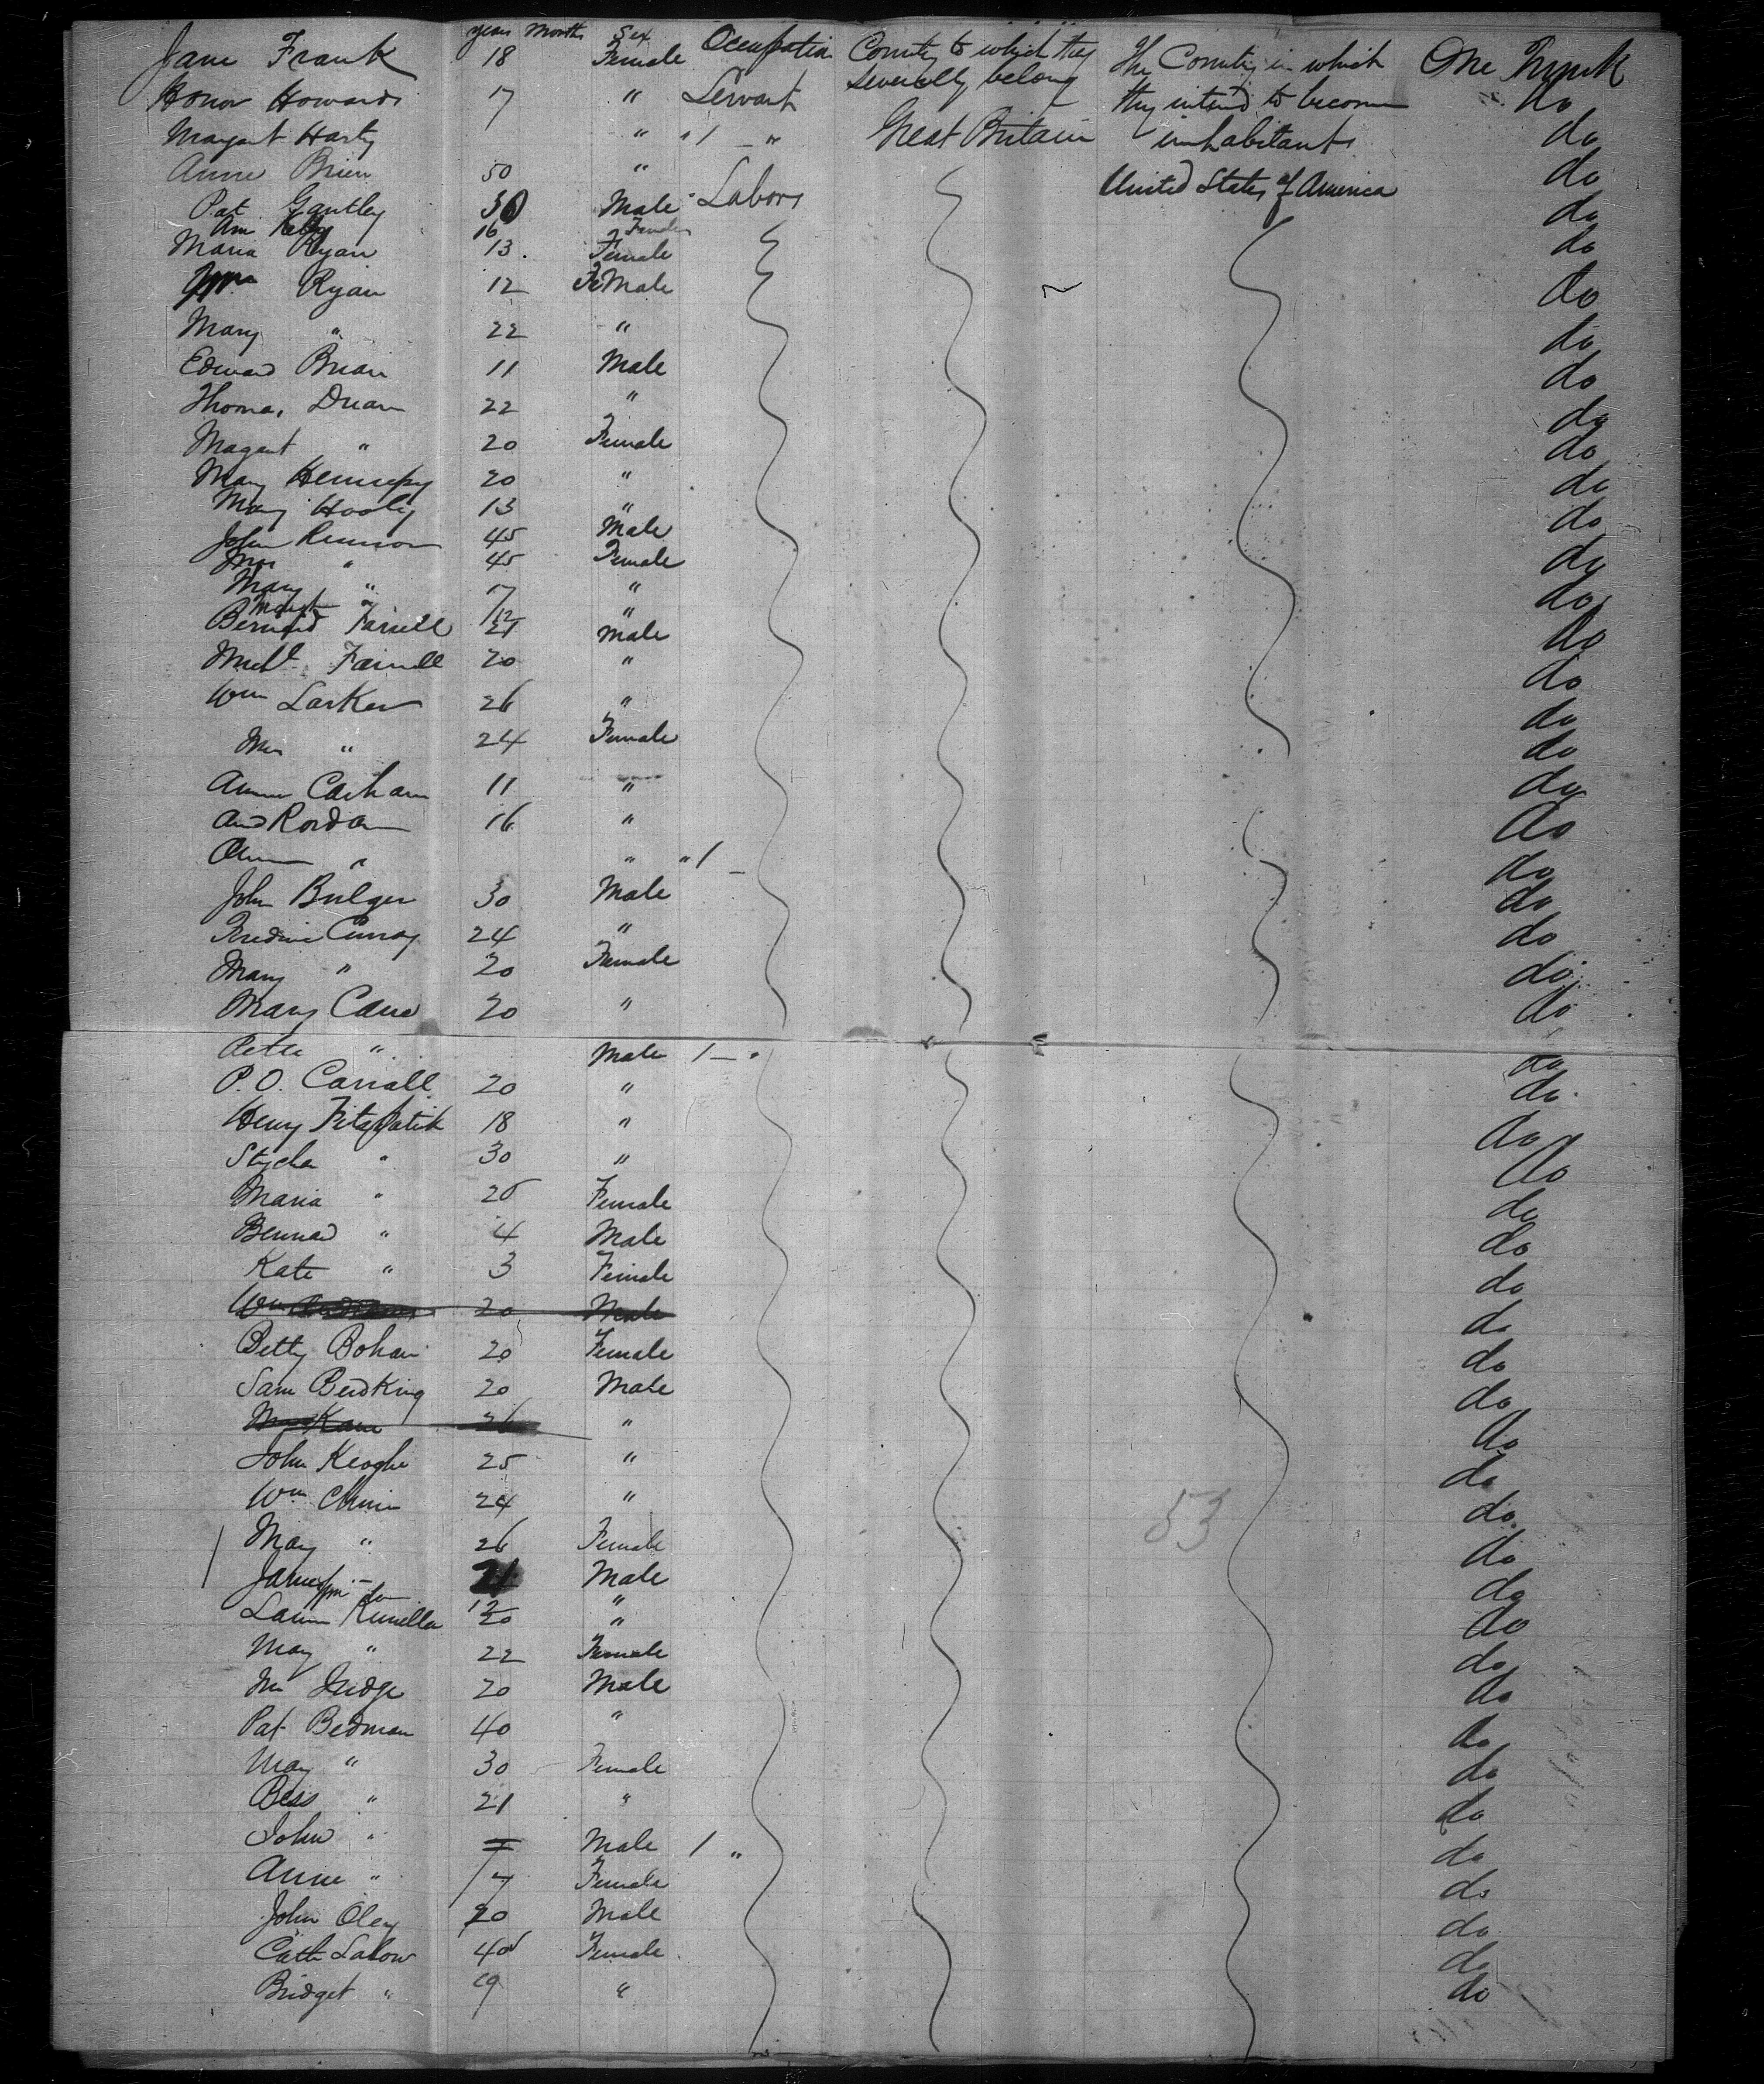 years Months Sex Occupation Country to which they severally belong The Country in which they intend to become inhabitants
Jane Frank 18 Female One Trunk
Honor Howard 17 " Servant Great Britain do
Margart Harty " " 1 — " do
Anne Brien 50 " United States of America do
Pat Gantley 30 Male Labors do
Ann Kelly 16 Female
Maria Ryan 13 Female do
Ryan 12 FeMale do
Mary " 22 " do
Edward Brian 11 Male do
Thomas Duan 22 " do
Magart " 20 Female do
Mary Hennepy 20 " do
Mary Hooly 13 " do
John Kennion 45 Male do
Mrs " 45 Female do
Mary " 7 " do
Margt " 12 "
Bernard Farrell 21 Male do
Michl Farrell 20 " do
Wm Larken 26 " do
Mrs " 24 Female do
Anne Carhan 11 " do
And Rordan 16 " do
" " " 1 — do
John Bulger 30 Male do
Curray 24 " do
Mary " 20 Female do
Mary Cane 20 " do
Peter " Male 1 — " do
P. O. Carrall 20 " do
Henry Fitzpatick 18 " do
Stephen " 30 " do
Maria " 25 Female do
Bernard " 4 Male do
Kate " 3 Female do
Wm 20 Male do
Betty Bohan 20 Female do
Sam Berdking 20 Male do
Kane 26 " do
John Keoghe 25 " do
Wm Clunin 24 " do
53
May " 26 Female do
James 21 Male do
12 "
Kunella 20 " do
May " 22 Female do
Judge 20 Male do
Pat Bedman 40 " do
May " 30 Female do
Bess " 21 " do
John " Male 1 " do
Anne " 7 Female do
John Oley 20 Male do
Cath Lalow 40 Female do
Bridget " 19 " do